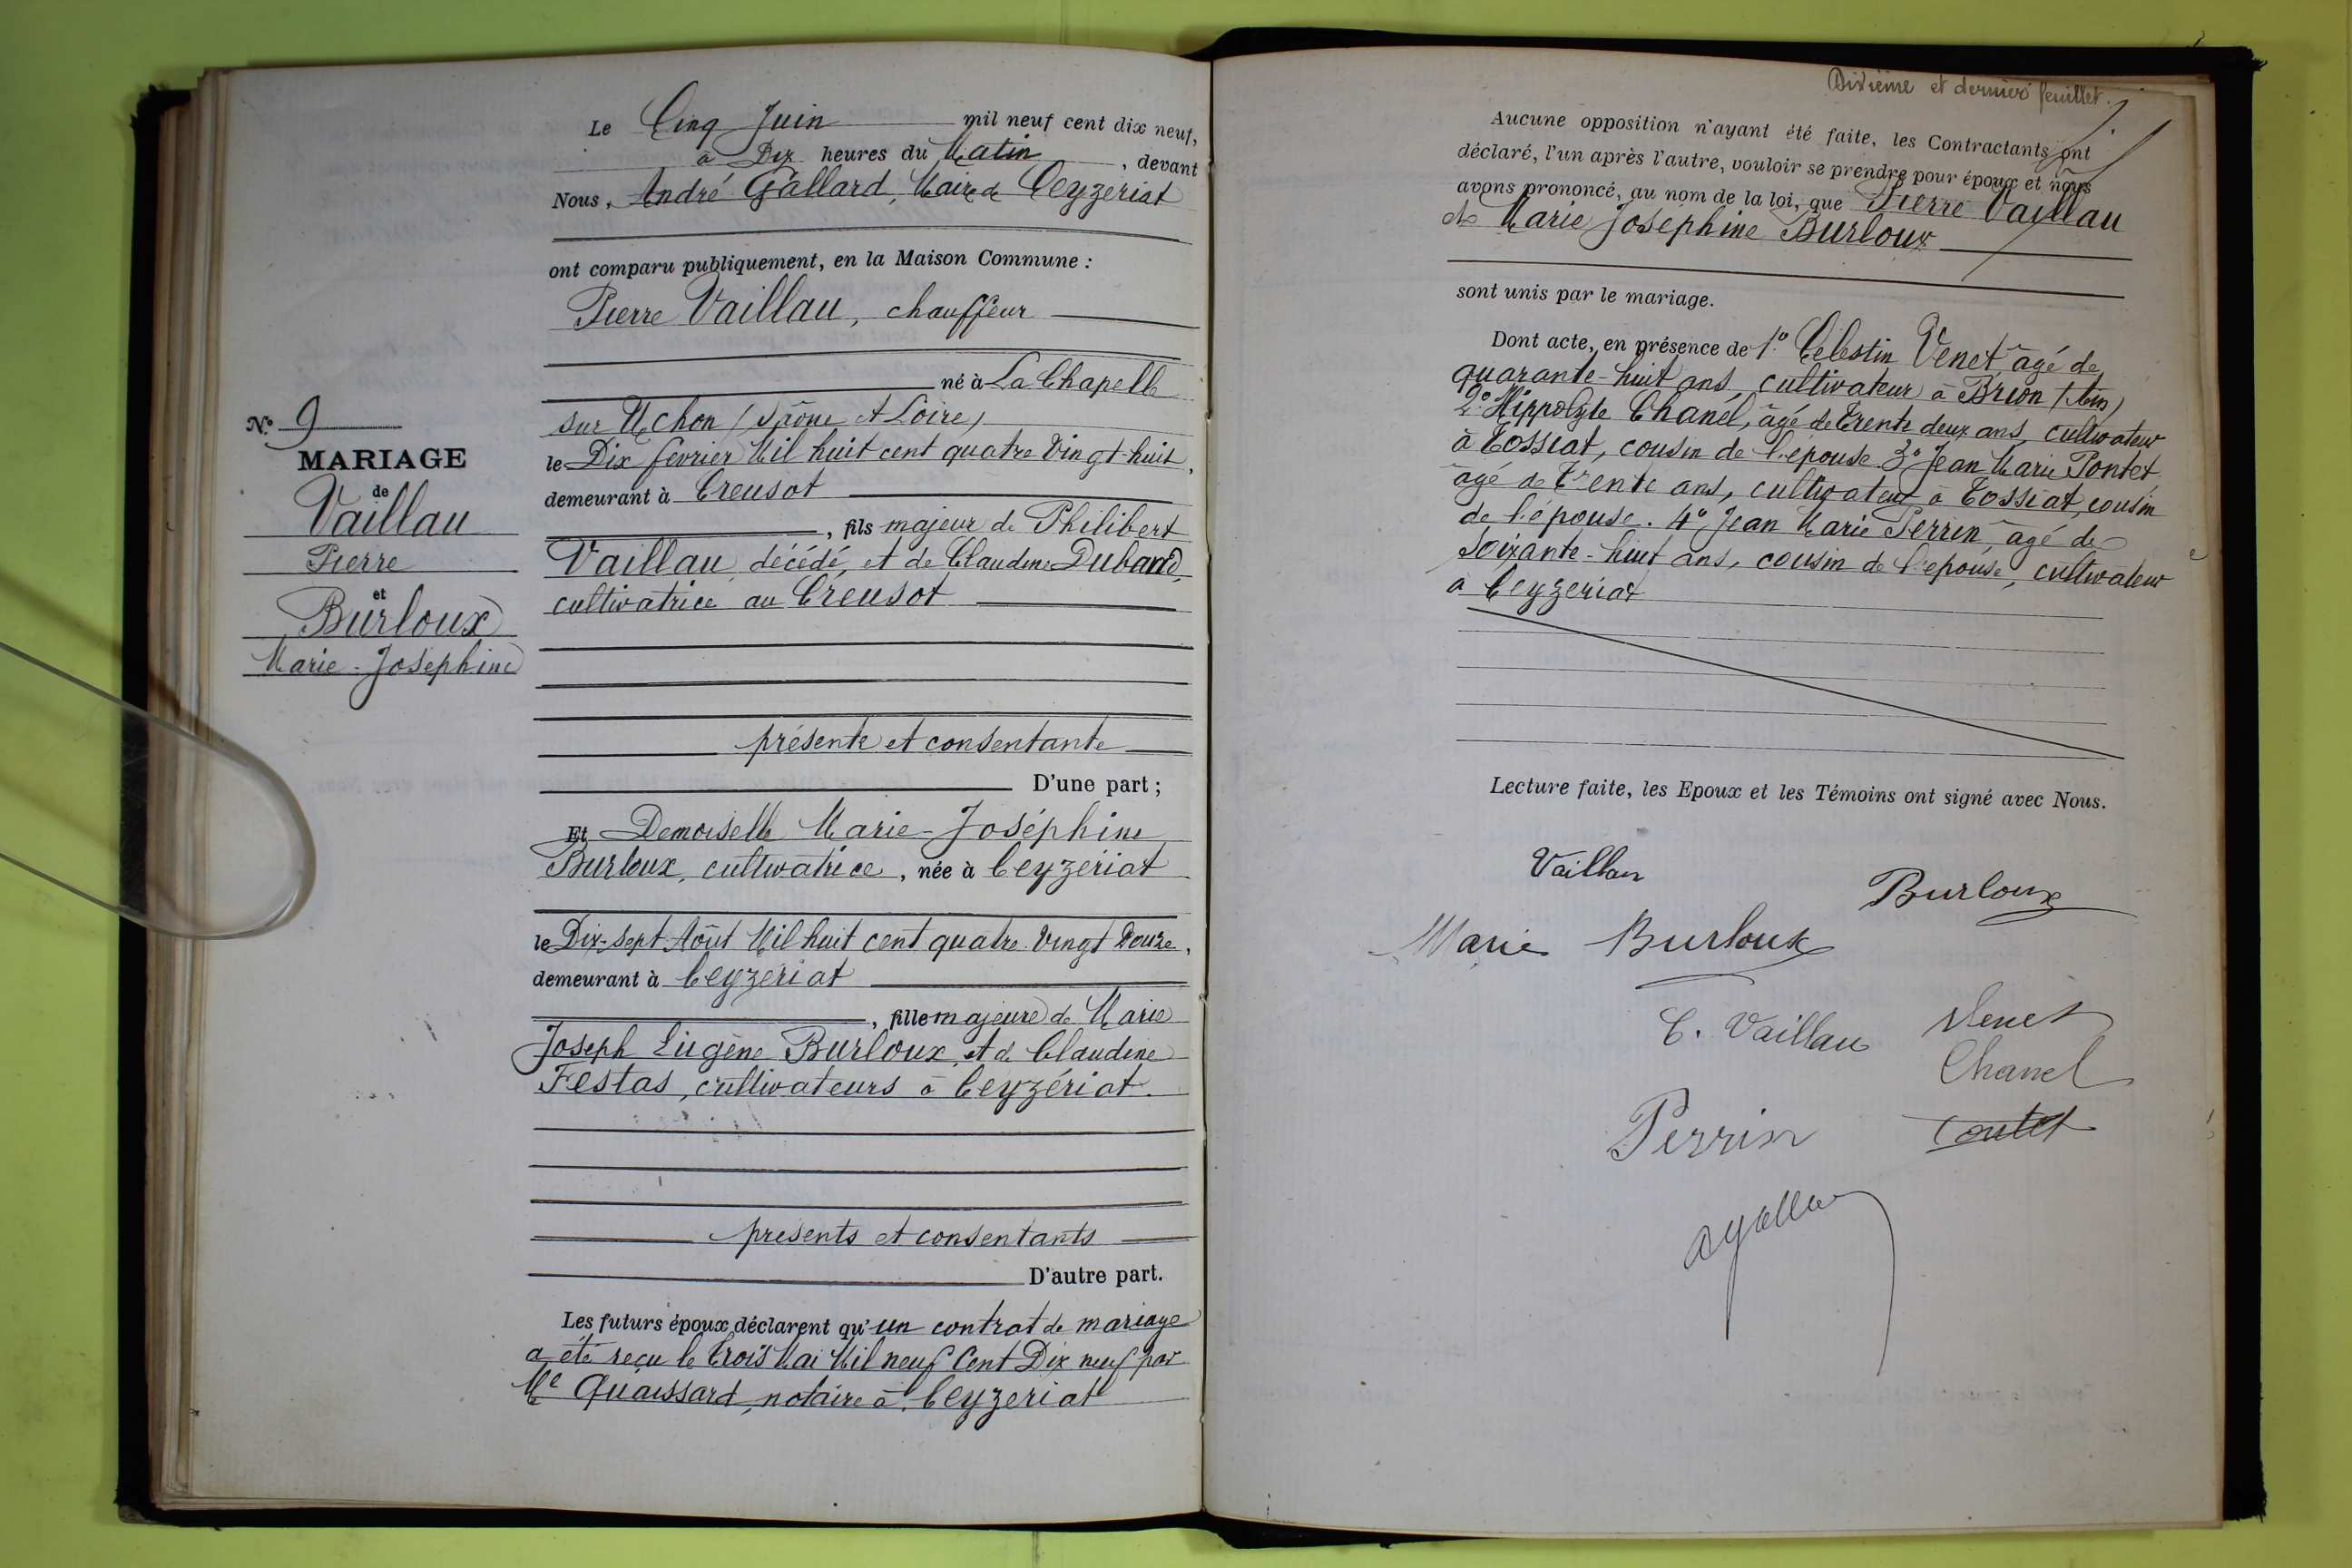 N.º 9
MARIAGE
de
Vaillau
Pierre
et
Burloux
Marie-Joséphine
Le Cinq Juin mil neuf cent dix neuf,
à Dix heures du Matin, devant
Nous, André Gallard, Maire de Ceyzeriat
ont comparu publiquement, en la Maison Commune :
Pierre Vaillau, chauffeur
né à La Chapelle
sur Uchon (Saône et Loire)
le Dix février Mil huit cent quatre Vingt-huit,
demeurant à Creusot
, fils majeur de Philibert
Vaillau, décédé, et de Claudine Duband,
cultivatrice au Creusot
présente et consentante
D'une part ;
Et Demoiselle Marie-Joséphine
Burloux, cultivatrice, née à Ceyzériat
le Dix-sept Août Mil huit cent quatre Vingt Douze,
demeurant à Ceyzériat
, fille majeure de Marie
Joseph Eugène Burloux, et de Claudine
Festas, cultivateurs à Ceyzériat.
présents et consentants
D'autre part.
Les futurs époux déclarent qu'un contrat de mariage
a été reçu le Trois Mai Mil neuf Cent Dix neuf par
Me Quaissard, notaire à Ceyzeriat
Dixième et dernier feuillet.
Aucune opposition n'ayant été faite, les Contractants ont
déclaré, l'un après l'autre, vouloir se prendre pour époux et nous
avons prononcé, au nom de la loi, que Pierre Vaillau
et Marie Joséphine Burloux
sont unis par le mariage.
Dont acte, en présence de 1º Célestin Venet, âgé de
quarante-huit ans, cultivateur à Brion (Ain)
2º Hippolyte Chanel, âgé de Trente deux ans, cultivateur
à Tossiat, cousin de l'épouse. 3º Jean Marie Pontet,
âgé de Trente ans, cultivateur à Tossiat, cousin
de l'épouse. 4º Jean Marie Perrin, âgé de
Soixante-huit ans, cousin de l'épouse, cultivateur
à Ceyzeriat
Lecture faite, les Epoux et les Témoins ont signé avec Nous.
Vaillau
Burloux
Marie Burloux
C. Vaillau
Venet
Chanel
Perrin